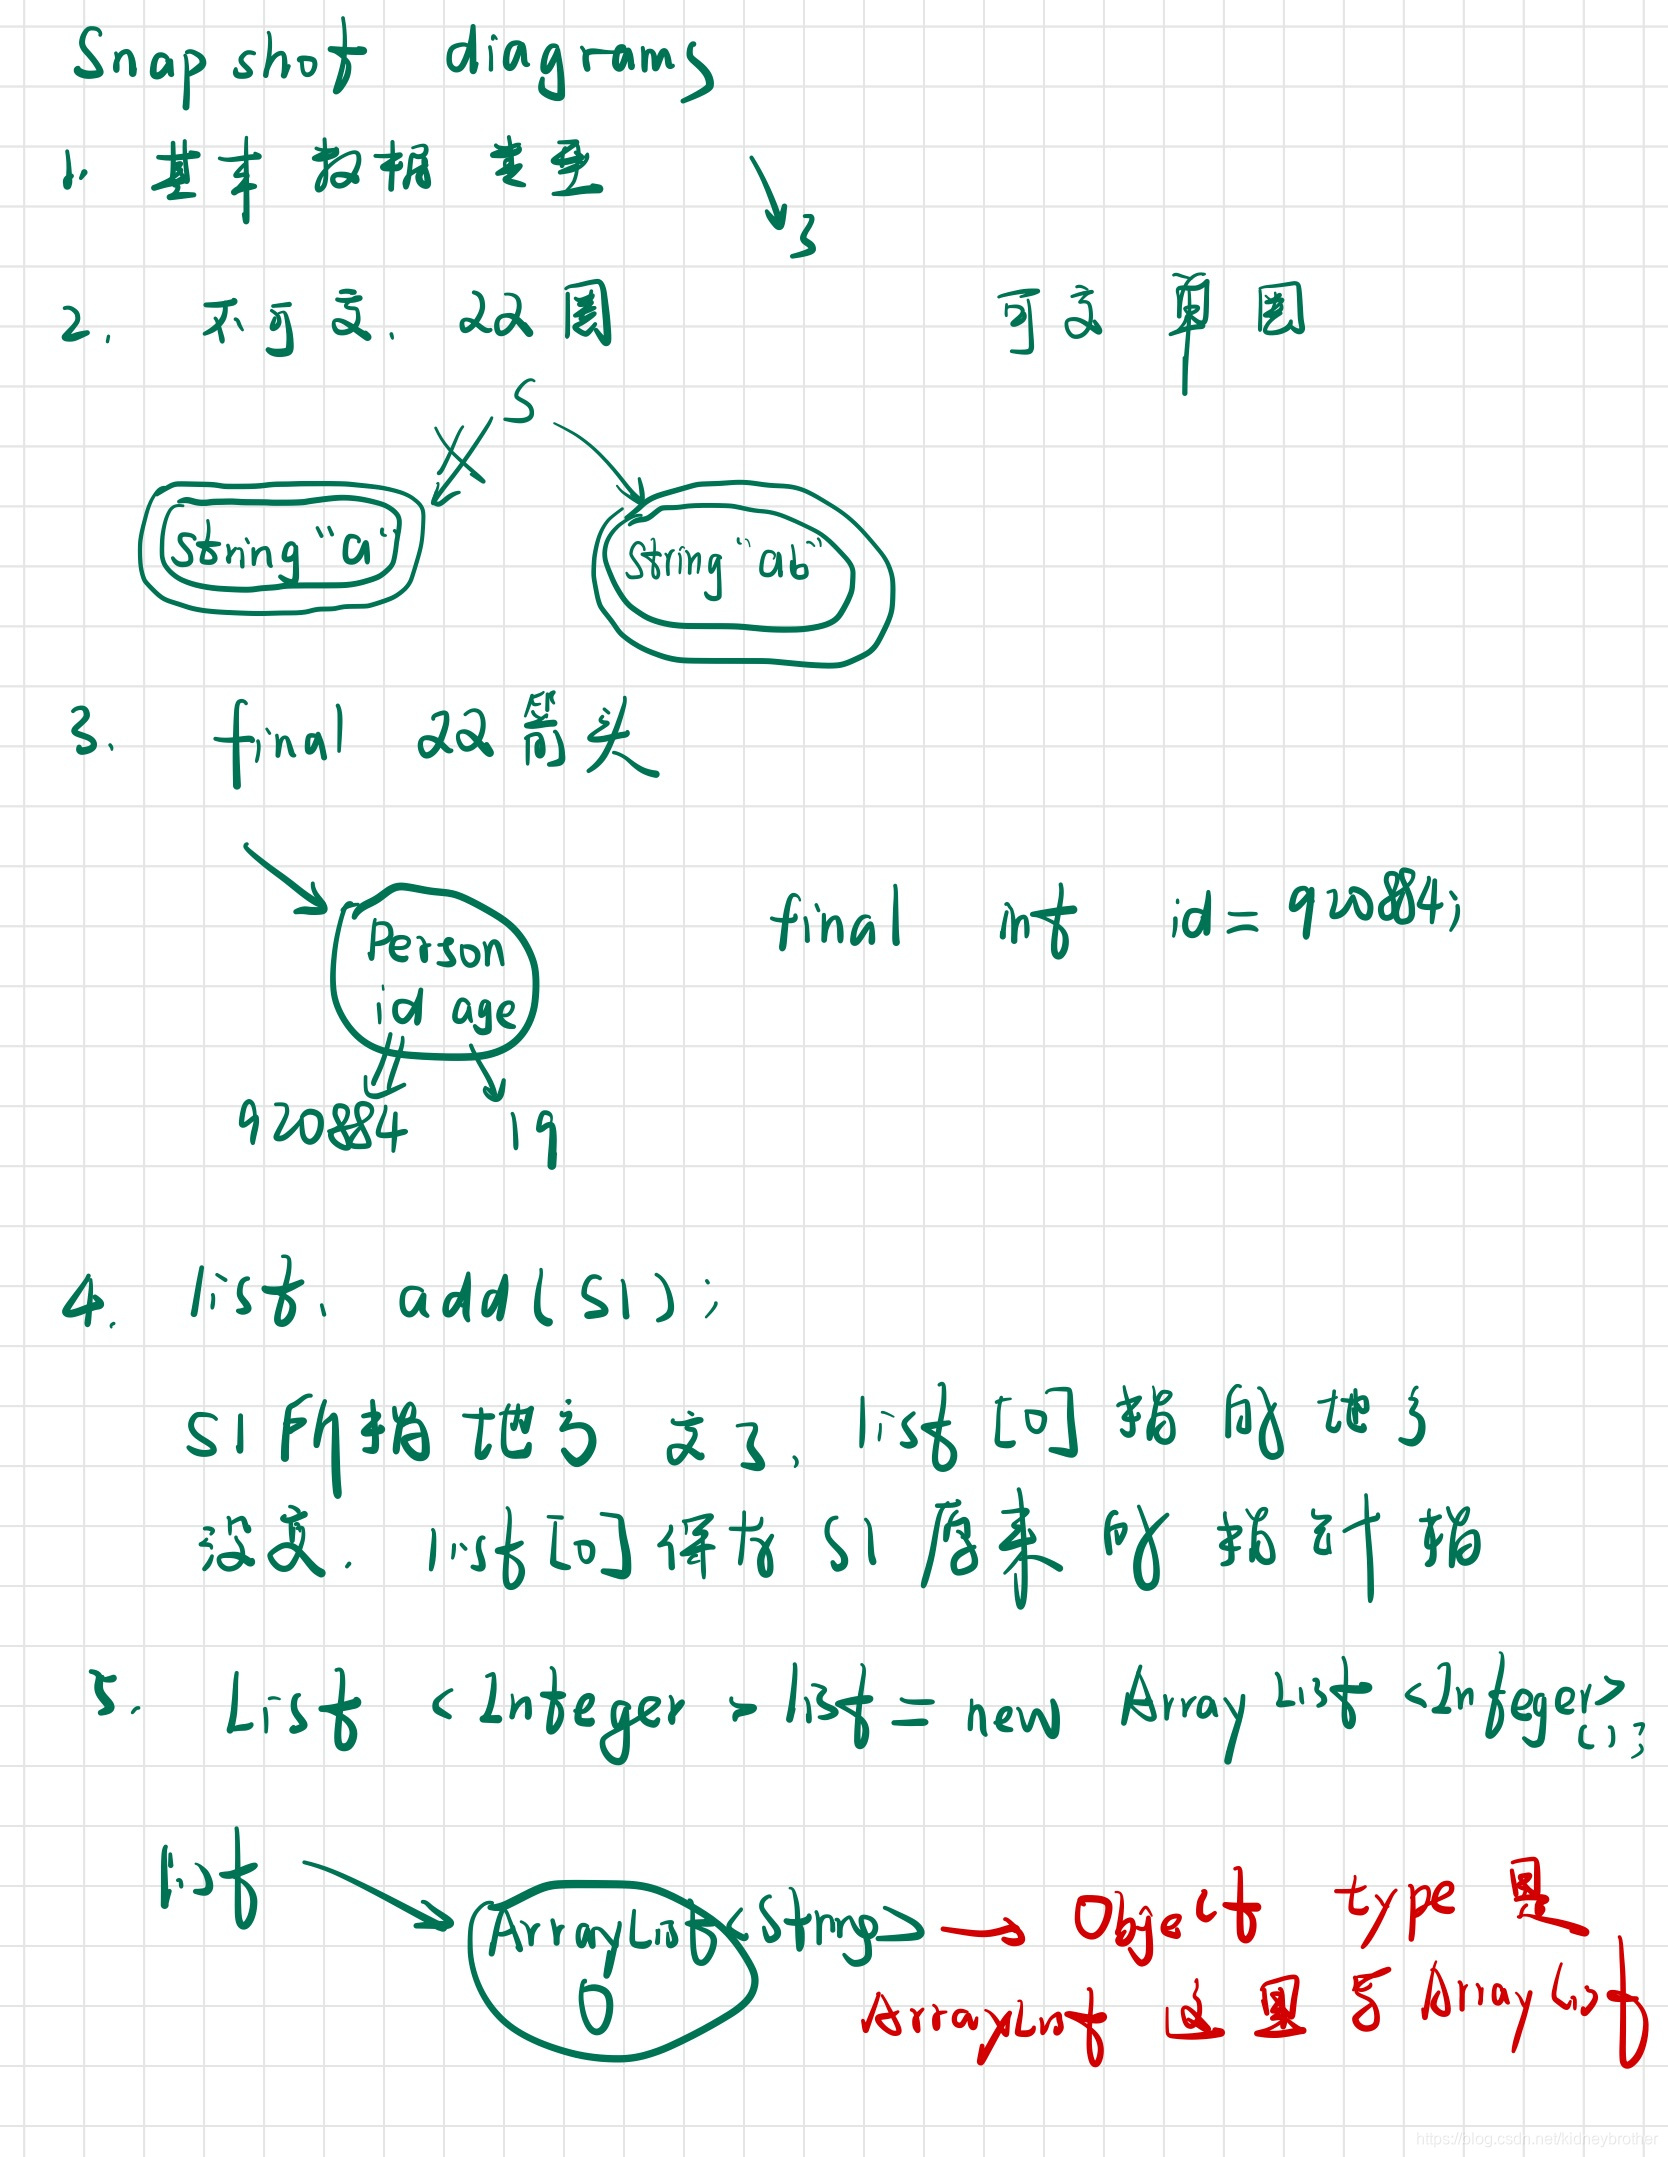 Snapshot diagrams
1. 基本数据类型 3
2. 不可变. 22圈 可变 单圈
S
String "a" String "ab"
3. final 22箭头
Person final int id = 920884;
id age
920884 19
4. list. add(S1);
S1所指地方变了, list[0]指的地方
没变. list[0]保存S1原来的指针指
5. List <Integer> list = new ArrayList <Integer>
();
list ArrayList<String> Object type 是
0 ArrayList 这里写ArrayList
https://blog.csdn.net/kidneybrother